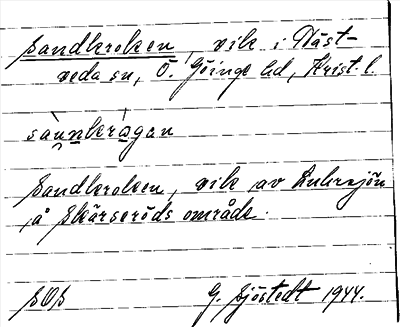 Sandkroken, vik i Näst-
veda sn, Ö. Göinge hd, Krist. l.
sàn̥nkrágan
Sandkroken, vik av Luhrsjön
å Skärseröds område.
SOS G. Sjöstedt 1944.